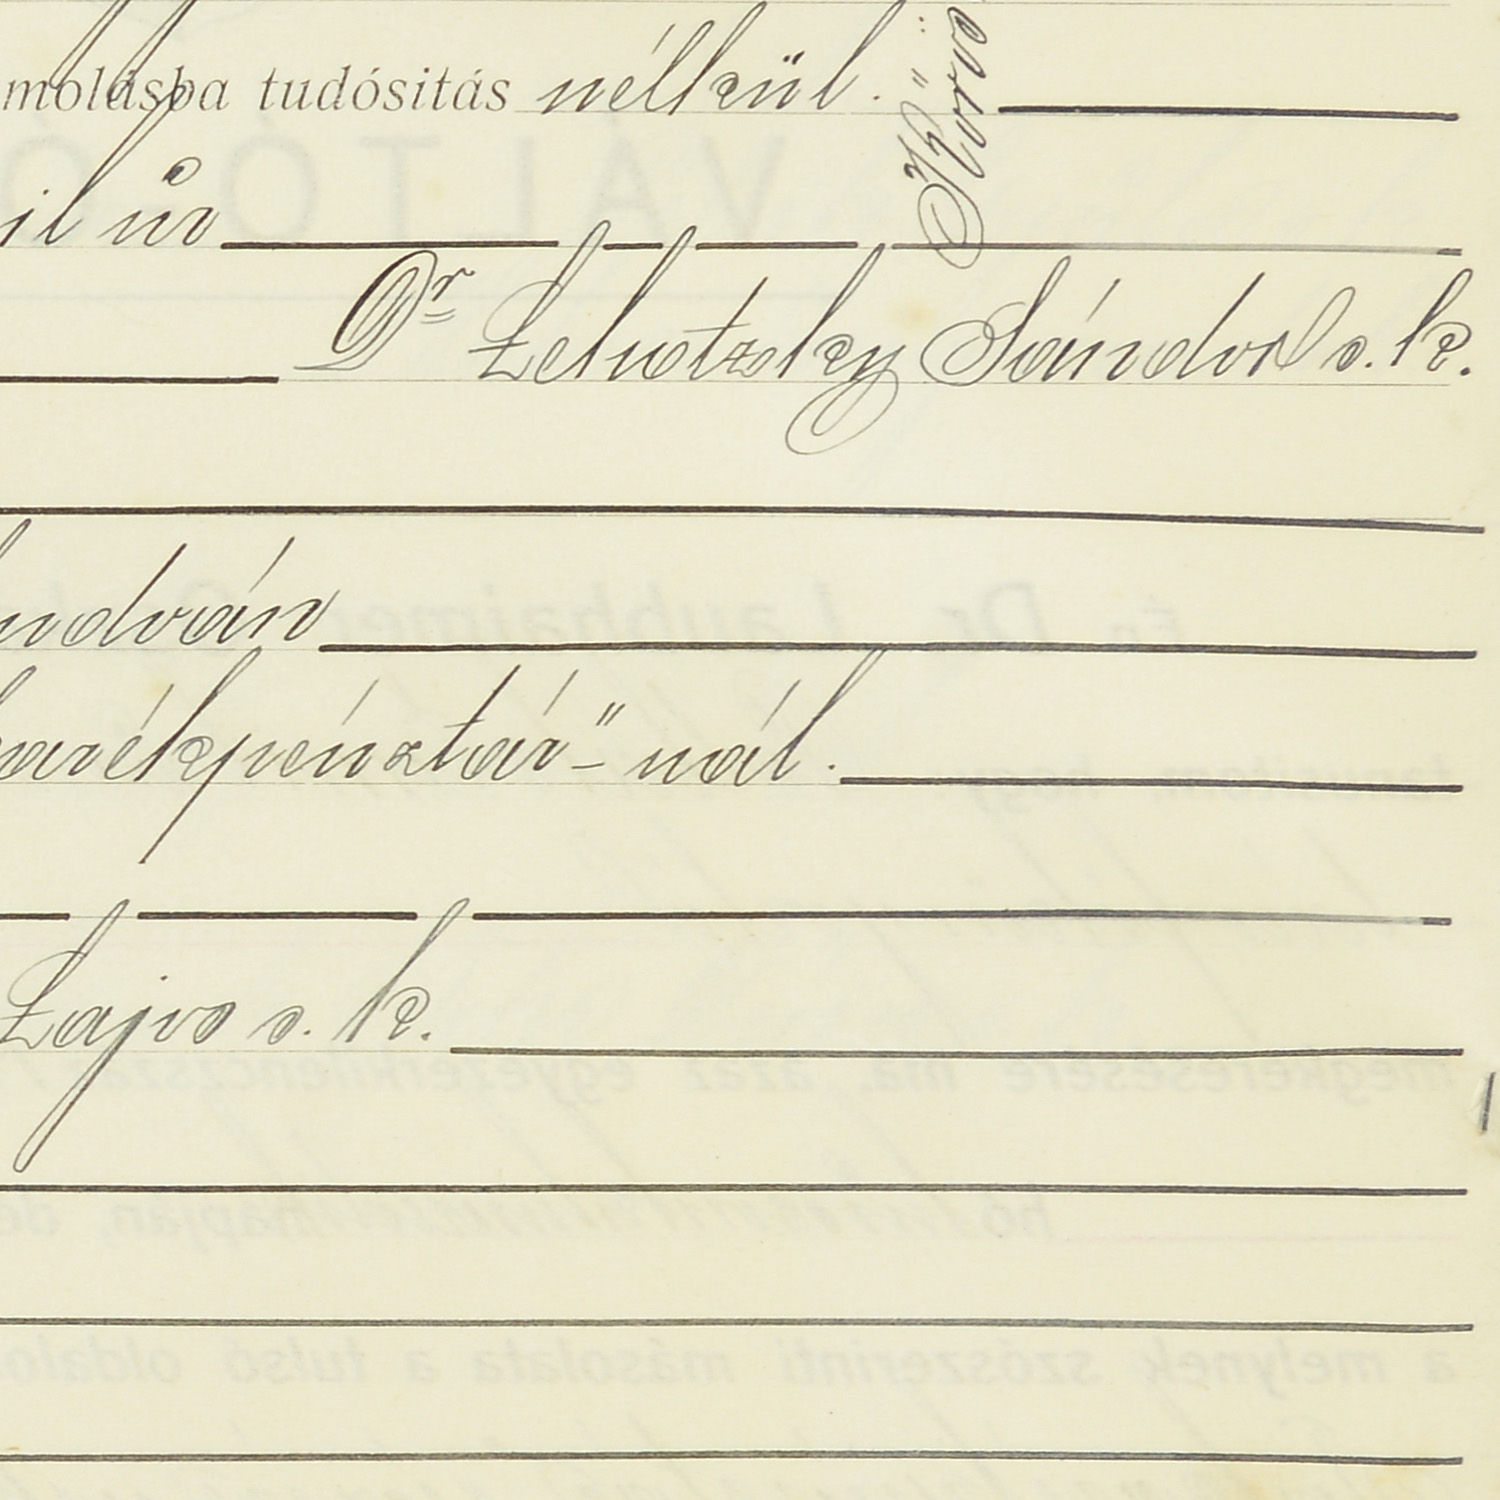 molásba tudósitás nélkül.
il úr
Dr Lehotzky Sándor s. k.
ndván
arékpénztár"-nál.
Lajos s. k.